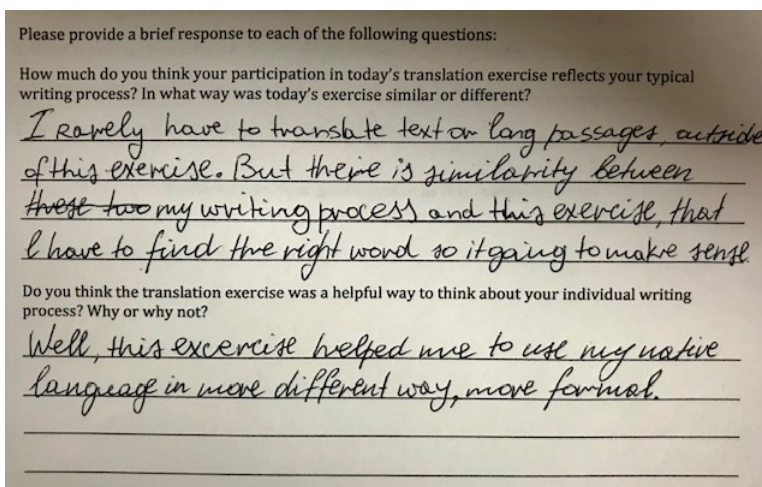 Please provide a brief response to each of the following questions:
How much do you think your participation in today's translation exercise reflects your typical
writing process? In what way was today's exercise similar or different?
I Rarely have to translate text or long passages, outside
of this exercise. But there is similarity between
these two my writing process and this exercise, that
I have to find the right word so it going to make sense.
Do you think the translation exercise was a helpful way to think about your individual writing
process? Why or why not?
Well, this excercise helped me to use my native
language in more different way, more formal.